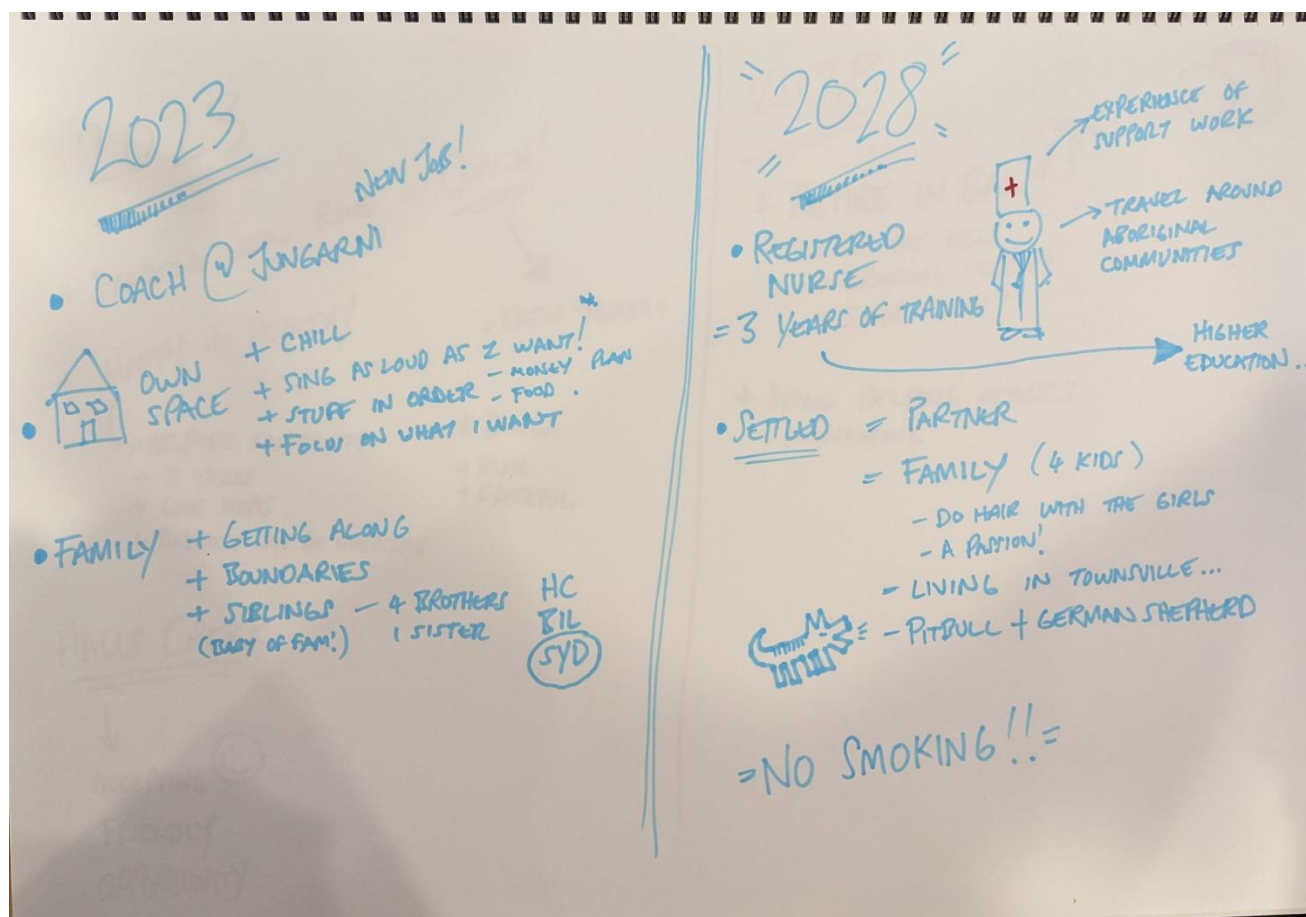 2023
NEW JOB!
• COACH @ JUNGARNI
• OWN SPACE
+ CHILL
+ SING AS LOUD AS I WANT!*
+ STUFF IN ORDER - MONEY PLAN
- FOOD.
+ FOCUS ON WHAT I WANT
• FAMILY + GETTING ALONG
+ BOUNDARIES
+ SIBLINGS - 4 BROTHERS
(BABY OF FAM!) 1 SISTER
HC
BIL
SYD
"2028"
• REGISTERED
NURSE
= 3 YEARS OF TRAINING
EXPERIENCE OF
SUPPORT WORK
TRAVEL AROUND
ABORIGINAL
COMMUNITIES
HIGHER
EDUCATION...
• SETTLED = PARTNER
= FAMILY (4 KIDS)
- DO HAIR WITH THE GIRLS
- A PASSION!
- LIVING IN TOWNSVILLE...
- PITBULL + GERMAN SHEPHERD
= NO SMOKING!! =
HALLS
FRIENDLY
OPPORTUNITY